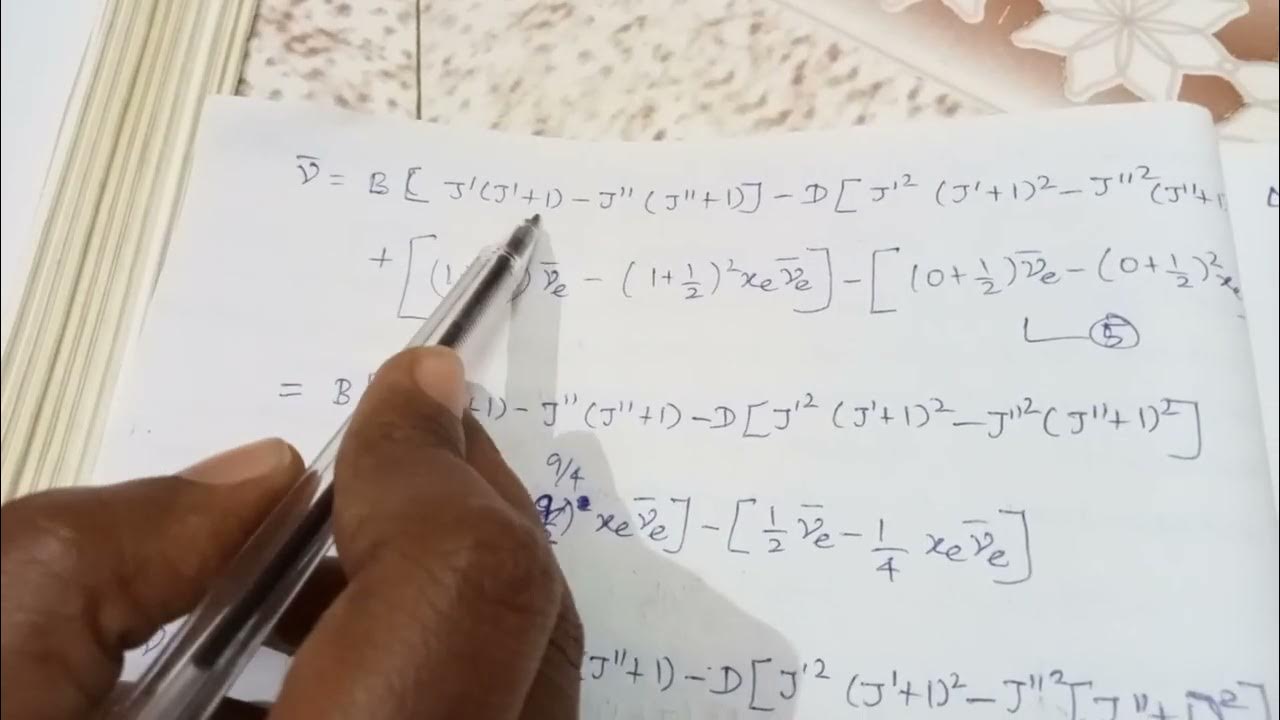 ν̄ = B [ J'(J'+1) – J'' (J''+1)] – D [ J'² (J'+1)² – J''² (J''+1
+ [ (1 ) ν̄e – (1+½)² xe ν̄e ] – [ (0+½) ν̄e – (0+½)² xe
5
= B +1) – J'' (J''+1) – D [ J'² (J'+1)² – J''² (J''+1)² ]
9/4
xe ν̄e ] – [ ½ ν̄e – ¼ xe ν̄e ]
(J''+1) – D [ J'² (J'+1)² – J''² [ J''+1 ]² ]